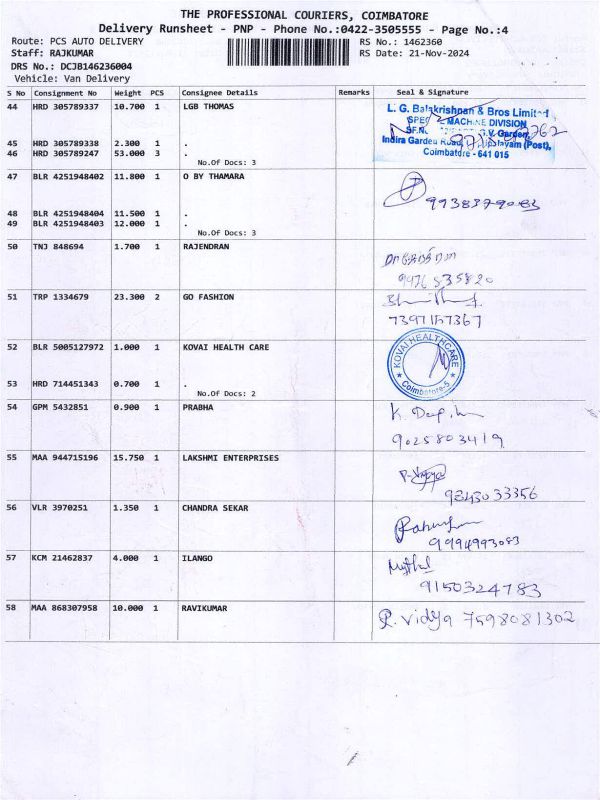 THE PROFESSIONAL COURIERS, COIMBATORE
Delivery Runsheet - PNP - Phone No.:0422-3505555 - Page No.:4
Route: PCS AUTO DELIVERY RS No.: 1462360
Staff: RAJKUMAR RS Date: 21-Nov-2024
DRS No.: DCJB146236004
Vehicle: Van Delivery
S No Consignment No Weight PCS Consignee Details Remarks Seal & Signature
44 HRD 305789337 10.700 1 LGB THOMAS
L. G. Balakrishnan & Bros Limited
MACHINE DIVISION
G.V. Garden,
Indira Garden Road, (Post),
Coimbatore - 641 015
45 HRD 305789338 2.300 1 .
46 HRD 305789247 53.000 3 .
No.Of Docs: 3
47 BLR 4251948402 11.800 1 O BY THAMARA
9938379083
48 BLR 4251948404 11.500 1 .
49 BLR 4251948403 12.000 1 .
No.Of Docs: 3
50 TNJ 848694 1.700 1 RAJENDRAN
51 TRP 1334679 23.300 2 GO FASHION
7397157367
52 BLR 5005127972 1.000 1 KOVAI HEALTH CARE
KOVAI HEALTHCARE
Coimbatore-5
53 HRD 714451343 0.700 1 .
No.Of Docs: 2
54 GPM 5432851 0.900 1 PRABHA
9025803419
55 MAA 944715196 15.750 1 LAKSHMI ENTERPRISES
9343033356
56 VLR 3970251 1.350 1 CHANDRA SEKAR
9994993083
57 KCM 21462837 4.000 1 ILANGO
9150324783
58 MAA 868307958 10.000 1 RAVIKUMAR
P. Vidya 7598081302